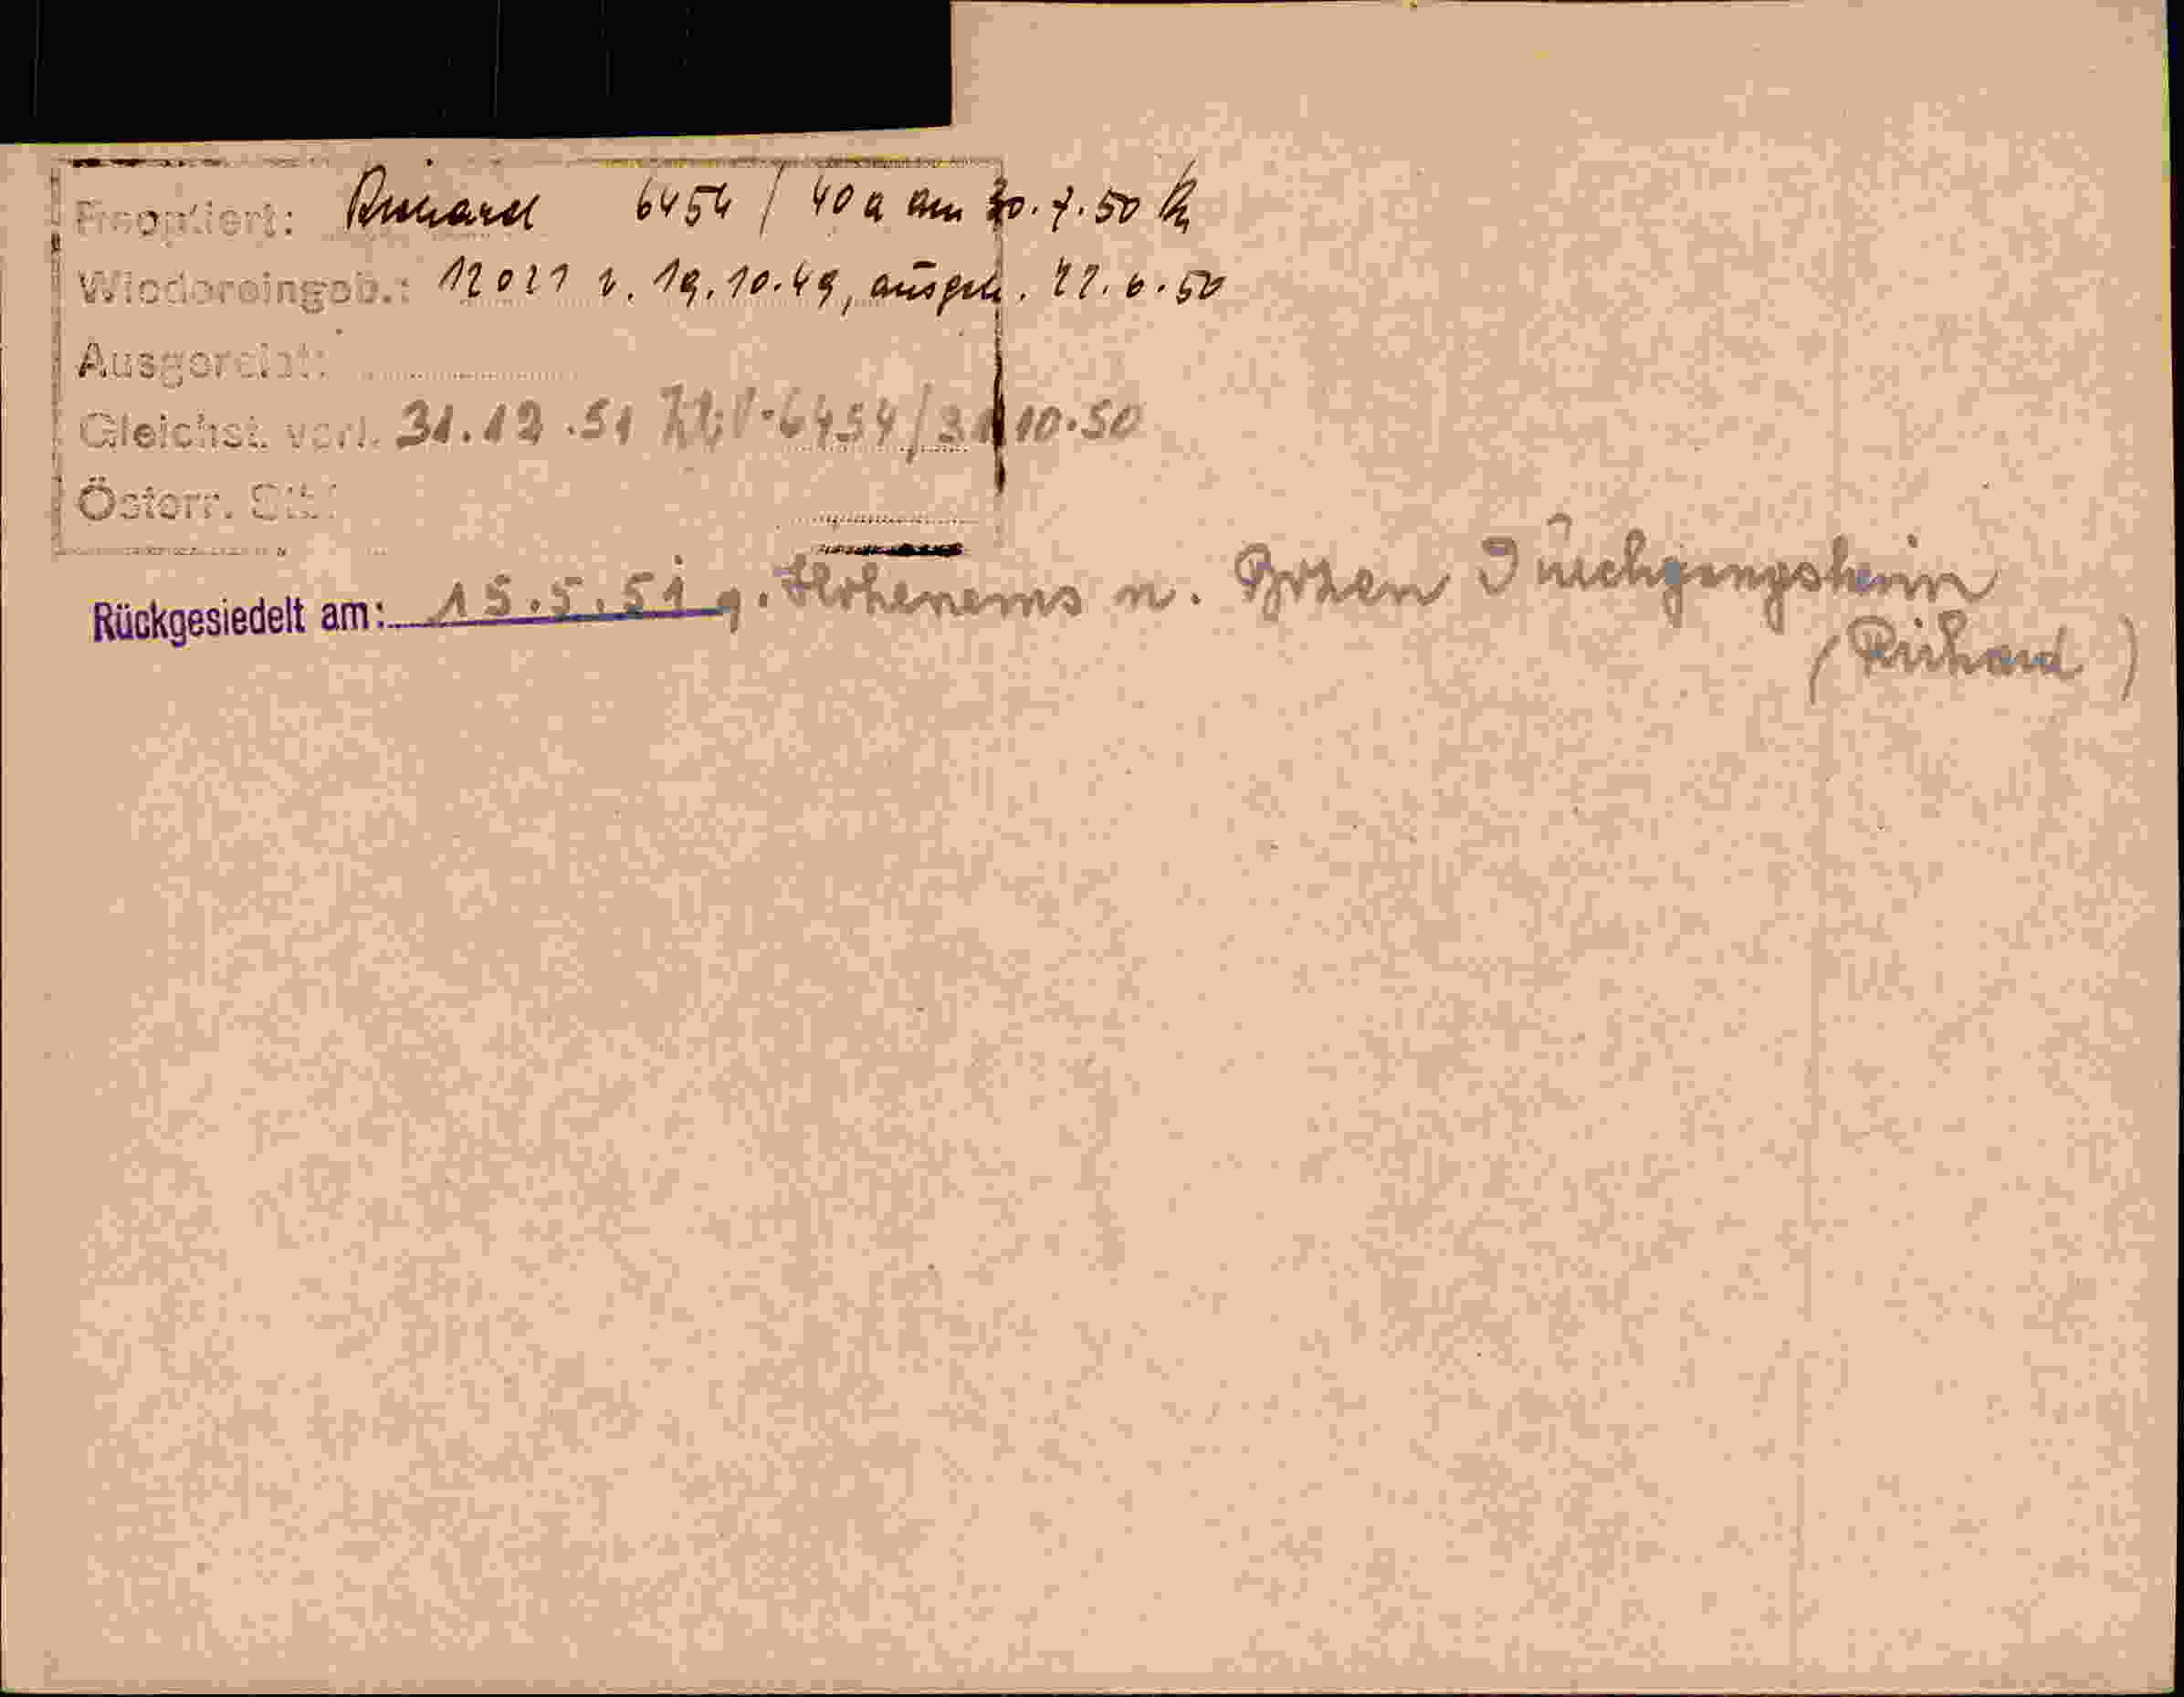 Reoptiert: Richard 6454 / 40 a am 30.7.50
Wiedereingeb.: 12021 v. 19.10.49, ausgeh. 22.6.50
Ausgereist:
Gleichst. verl. 31.12.51 6454/31 10.50
Österr. Stb.
Rückgesiedelt am: 15.5.51 g. Hohenems n. Bozen Durchgangsheim
(Richard)